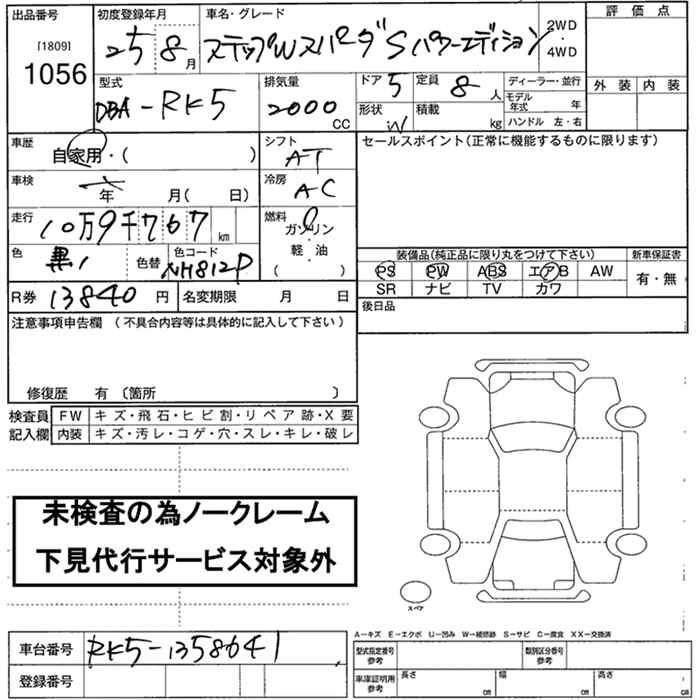 出品番号 [1809] 1056
初度登録年月 25 8月
車名・グレード ステップWスパーダS パワーエディション
2WD・4WD
評価点
外装 内装
型式 DBA-RK5
排気量 2000 CC
ドア 5
形状 W
定員 8 人
積載 kg
ディーラー・並行
モデル年式 年
ハンドル 左・右
車歴 自家用・( )
シフト AT
セールスポイント(正常に機能するものに限ります)
車検 年 月( 日)
冷房 AC
走行 10万9千767 km
燃料 ガソリン・軽・油 ( )
色 黒
色替
色コード NH812P
装備品(純正品に限り丸をつけて下さい)
PS PW ABS エアB AW
SR ナビ TV カワ
新車保証書 有・無
R券 13840 円
名変期限 月 日
後日品
注意事項申告欄 (不具合内容等は具体的に記入して下さい)
修復歴 有 〔箇所 〕
検査員記入欄
FW キズ・飛石・ヒビ割・リペア跡・X要
内装 キズ・汚レ・コゲ・穴・スレ・キレ・破レ
未検査の為ノークレーム
下見代行サービス対象外
スペア
A−キズ E−エクボ U−凹み W−補修跡 S−サビ C−腐食 XX−交換済
車台番号 RK5-1358641
登録番号
型式指定番号 参考
類別区分番号 参考
車庫証明用 参考
長さ cm 幅 cm 高さ cm